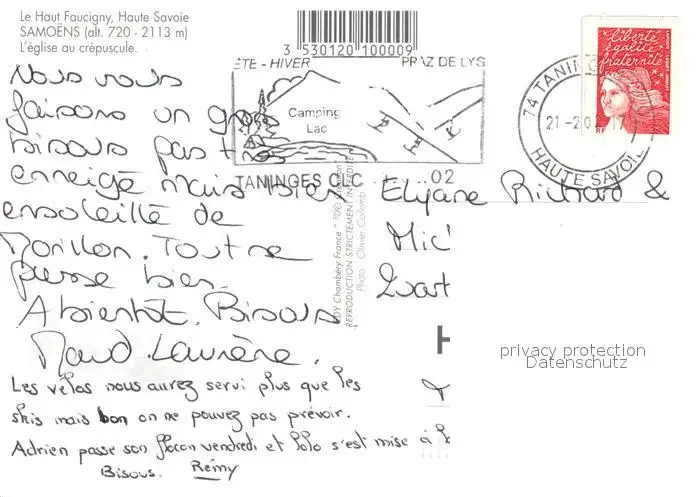 Le Haut Faucigny, Haute Savoie
SAMOËNS (alt. 720 - 2113 m)
L'église au crépuscule.
3 530120 100009
ÉTE - HIVER PRAZ DE LYS
Camping
Lac
TANINGES C.C. 02
74 TANIN
21 -2 02 17
HAUTE SAVOIE
liberté
égalité
fraternité
RF
Nous vous
faisons un gros
bisous pas
enneigé mais bien
ensoleillé de
Morillon. Tout se
passe bien.
A bientôt. Bisous.
Maud. Laurène.
Les vélos nous aurez servi plus que les
skis mais bon on ne pouvez pas prévoir.
Adrien passe son flocon vendredi et Lolo s'est mise à
Bisous. Rémy
Chambéry France
REPRODUCTION STRICTEMENT INTERDITE
Photo Olivier
Elyane Richard &
Mic
privacy protection
Datenschutz